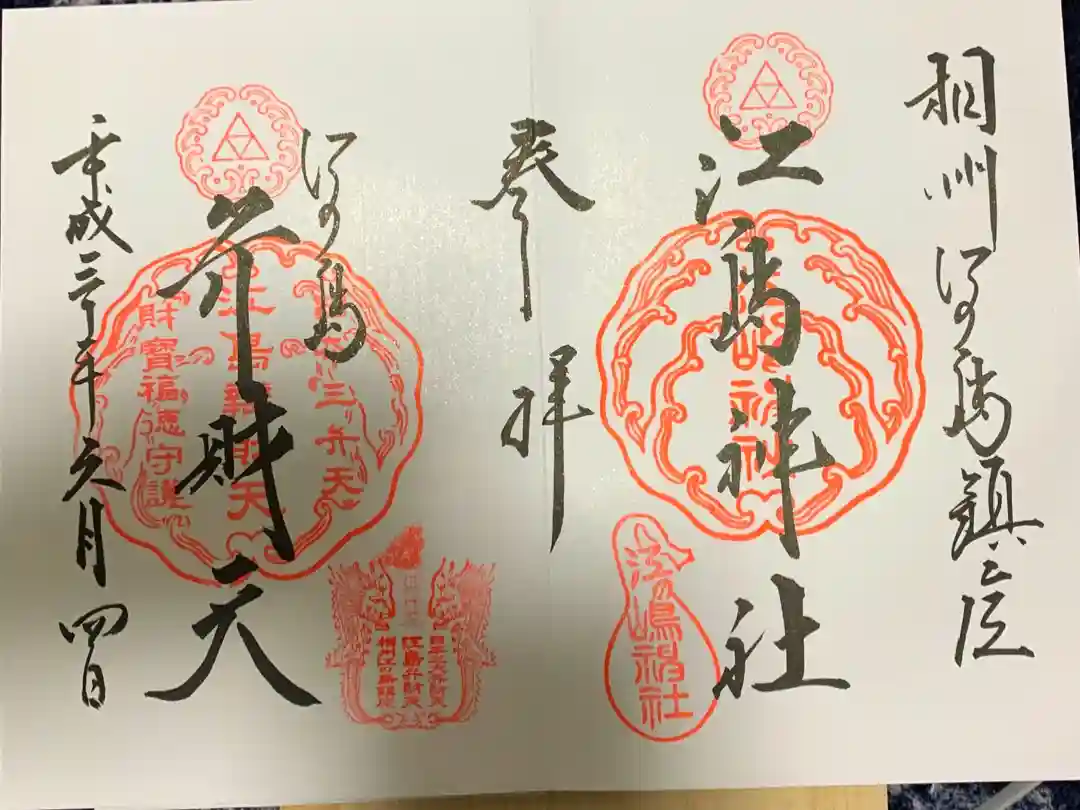 相州江の島鎮座
江島神社
奉拝
江の島
弁財天
平成三十年六月四日
江の嶋神社
三弁天
江島辨財天
財寶福徳守護
日本三大弁財天
江島弁財天